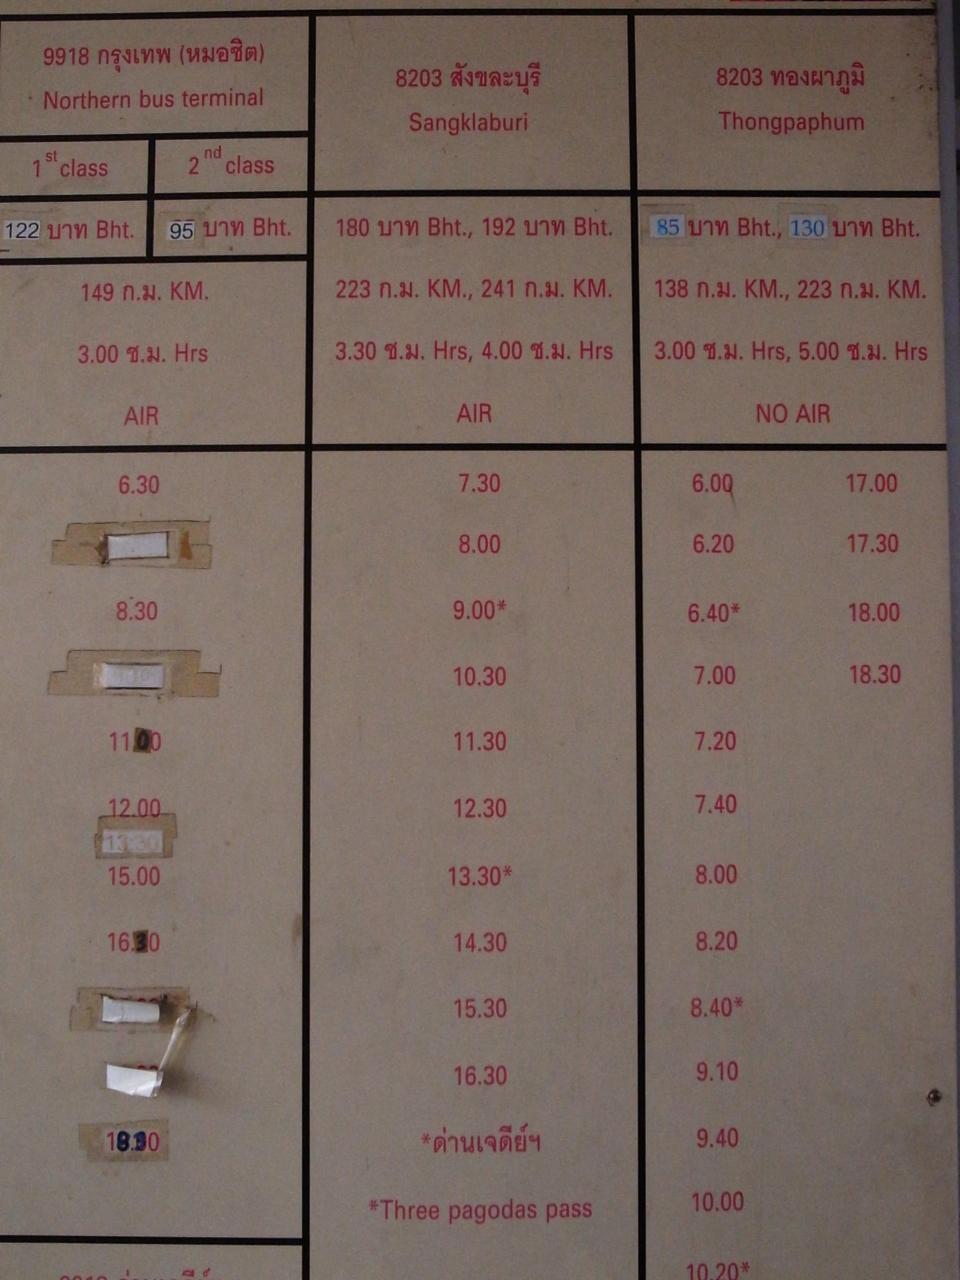 9918 กรุงเทพ (หมอชิต)
Northern bus terminal
1st class
2nd class
122 บาท Bht.
95 บาท Bht.
149 ก.ม. KM.
3.00 ช.ม. Hrs
AIR
6.30
8.30
11.00
12.00
13.30
15.00
16.30
8203 สังขละบุรี
Sangklaburi
180 บาท Bht., 192 บาท Bht.
223 ก.ม. KM., 241 ก.ม. KM.
3.30 ช.ม. Hrs, 4.00 ช.ม. Hrs
AIR
7.30
8.00
9.00*
10.30
11.30
12.30
13.30*
14.30
15.30
16.30
*ด่านเจดีย์ฯ
*Three pagodas pass
8203 ทองผาภูมิ
Thongpaphum
85 บาท Bht., 130 บาท Bht.
138 ก.ม. KM., 223 ก.ม. KM.
3.00 ช.ม. Hrs, 5.00 ช.ม. Hrs
NO AIR
6.00 17.00
6.20 17.30
6.40* 18.00
7.00 18.30
7.20
7.40
8.00
8.20
8.40*
9.10
9.40
10.00
10.20*